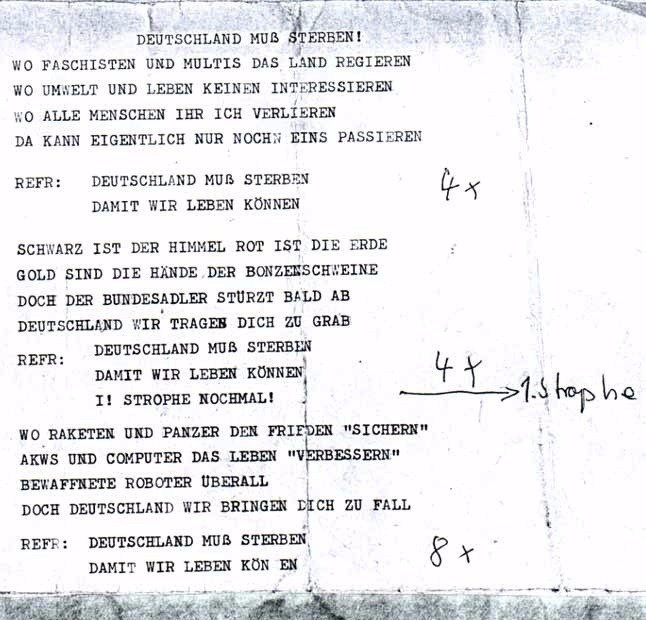 DEUTSCHLAND MUß STERBEN!
WO FASCHISTEN UND MULTIS DAS LAND REGIEREN
WO UMWELT UND LEBEN KEINEN INTERESSIEREN
WO ALLE MENSCHEN IHR ICH VERLIEREN
DA KANN EIGENTLICH NUR NOCHN EINS PASSIEREN
REFR: DEUTSCHLAND MUß STERBEN
DAMIT WIR LEBEN KÖNNEN 4x
SCHWARZ IST DER HIMMEL ROT IST DIE ERDE
GOLD SIND DIE HÄNDE DER BONZENSCHWEINE
DOCH DER BUNDESADLER STÜRZT BALD AB
DEUTSCHLAND WIR TRAGEN DICH ZU GRAB
REFR: DEUTSCHLAND MUß STERBEN
DAMIT WIR LEBEN KÖNNEN 4x
I! STROPHE NOCHMAL! → 1. Strophe
WO RAKETEN UND PANZER DEN FRIEDEN "SICHERN"
AKWS UND COMPUTER DAS LEBEN "VERBESSERN"
BEWAFFNETE ROBOTER ÜBERALL
DOCH DEUTSCHLAND WIR BRINGEN DICH ZU FALL
REFR: DEUTSCHLAND MUß STERBEN
DAMIT WIR LEBEN KÖN EN 8x